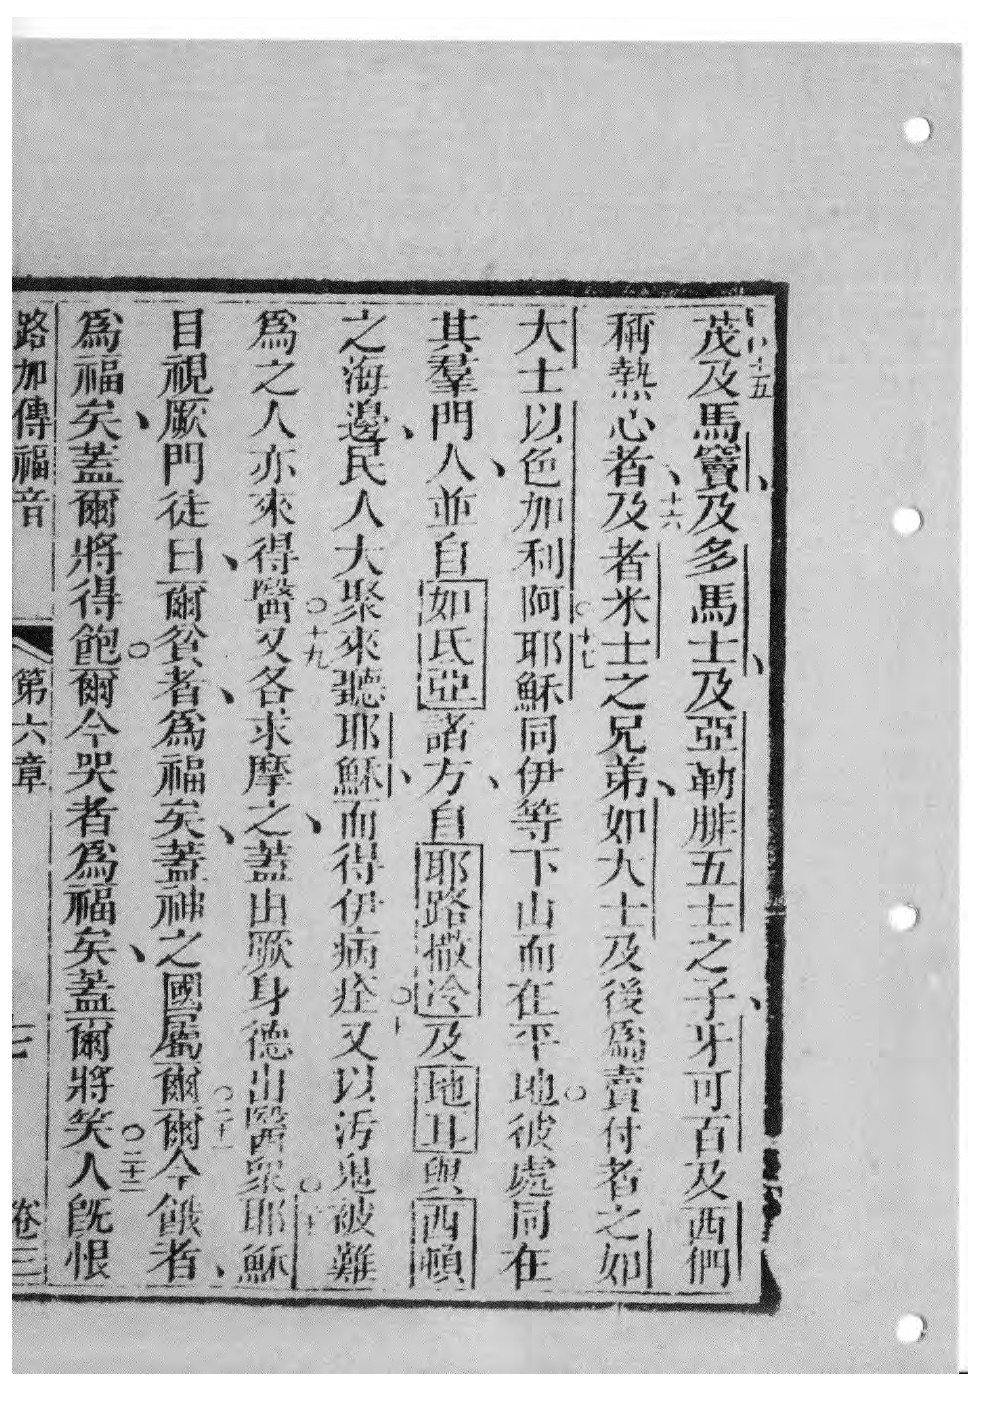 十五茂及馬竇、及多馬士、及亞勒腓五士之子、牙可百及西們
稱熱心者、十六及者米士之兄弟、如大士及後為賣付者之如
大士以色加利阿○十七耶穌同伊等下山而在平地○彼處同在
其羣門人、並自如氏亞諸方、自耶路撒冷及地耳與西頓
之海邊、民人大聚來聽耶穌、而得伊病痊○又以污鬼被難
為之人亦來得醫○十九又各求摩之、蓋出厥身德出醫眾○耶穌
目視厥門徒曰、爾貧者、為福矣、蓋神之國屬爾○二十一爾今餓者、
為福矣、蓋爾將得飽○爾今哭者為福矣、蓋爾將笑○二十二人旣恨
路加傳福音 第六章 七 卷三